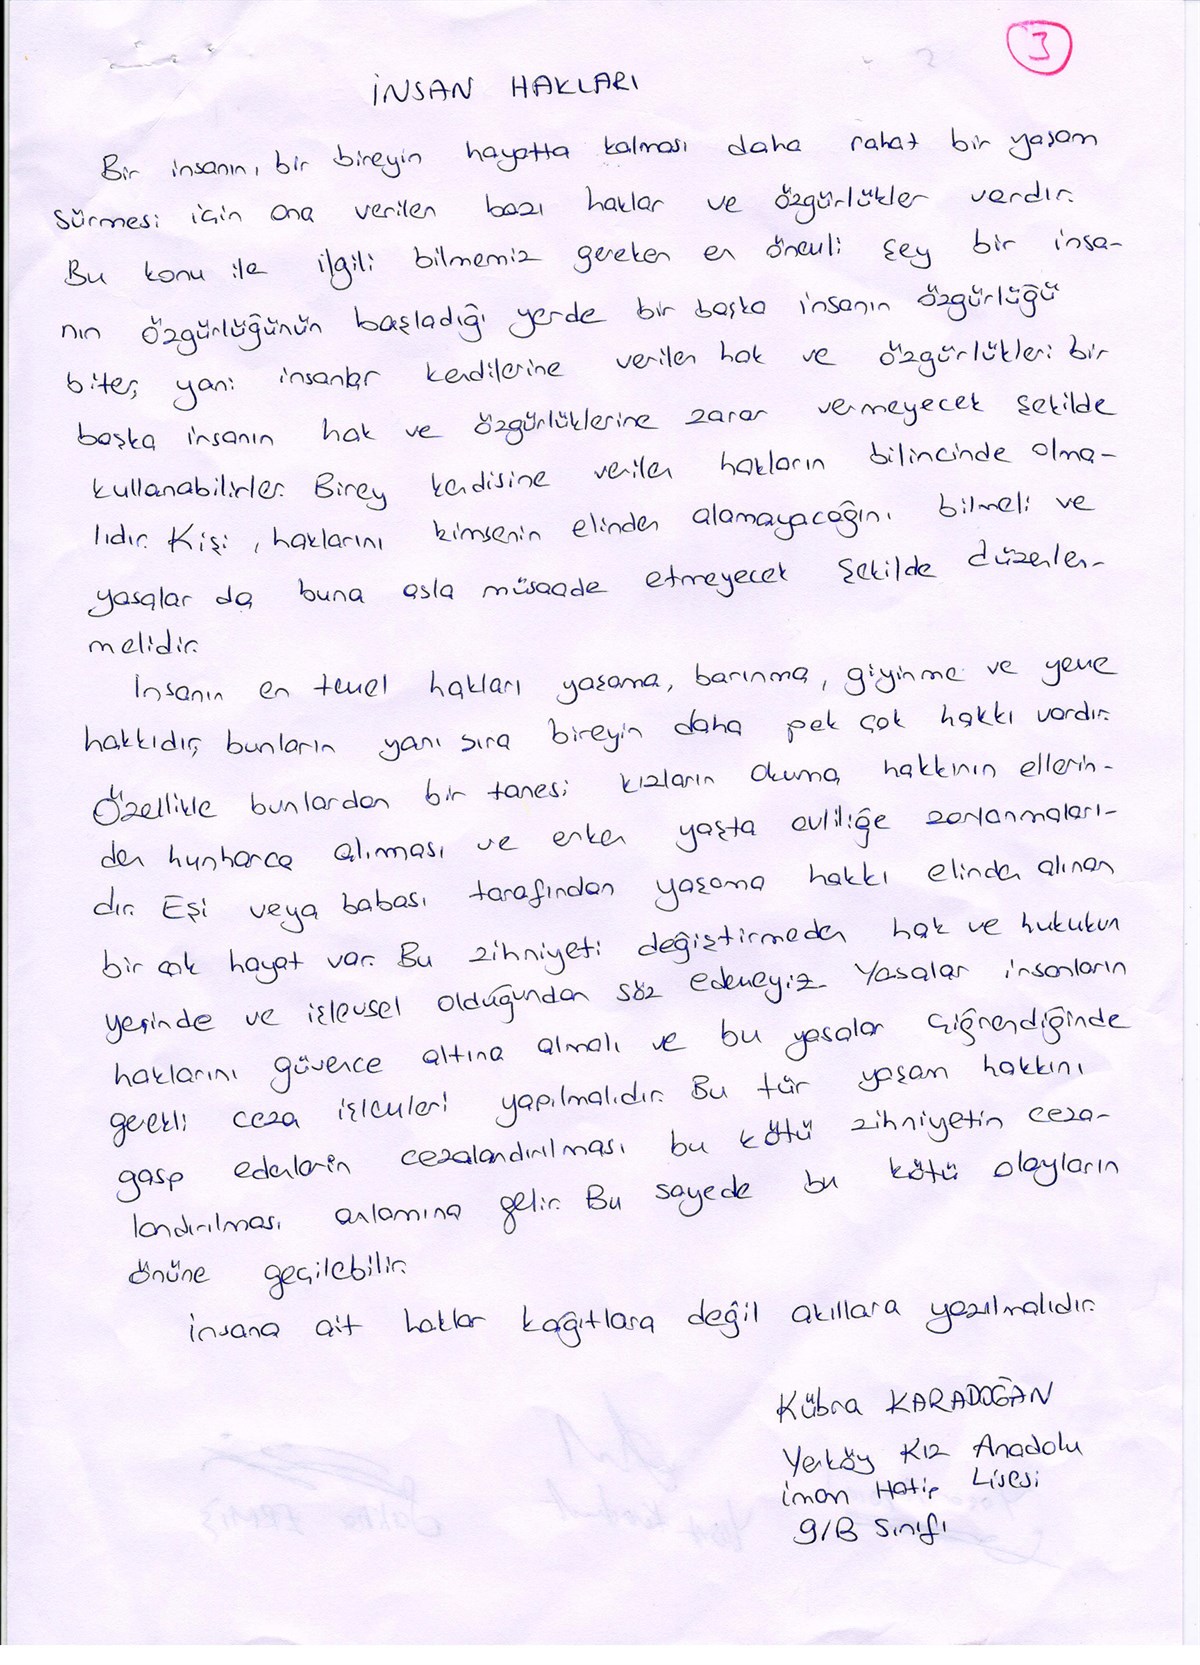 3
İNSAN HAKLARI
Bir insanın, bir bireyin hayatta kalması daha rahat bir yaşam
sürmesi için ona verilen bazı haklar ve özgürlükler vardır.
Bu konu ile ilgili bilmemiz gereken en önemli şey bir insa-
nın özgürlüğünün başladığı yerde bir başka insanın özgürlüğü
biter, yani insanlar kendilerine verilen hak ve özgürlükleri bir
başka insanın hak ve özgürlüklerine zarar vermeyecek şekilde
kullanabilirler. Birey kendisine verilen hakların bilincinde olma-
lıdır. Kişi, haklarını kimsenin elinden alamayacağını bilmeli ve
yasalar da buna asla müsaade etmeyecek şekilde düzenlen-
melidir.
İnsanın en temel hakları yaşama, barınma, giyinme ve yeme
hakkıdır, bunların yanı sıra bireyin daha pek çok hakkı vardır.
Özellikle bunlardan bir tanesi kızların okuma hakkının ellerin-
den hunharca alıması ve erken yaşta evliliğe zorlanmaları-
dır. Eşi veya babası tarafından yaşama hakkı elinden alınan
bir çok hayat var. Bu zihniyeti değiştirmeden hak ve hukukun
yerinde ve işlevsel olduğundan söz edemeyiz. Yasalar insanların
haklarını güvence altına almalı ve bu yasalar çiğnendiğinde
gerekli ceza işlemleri yapılmalıdır. Bu tür yaşam hakkını
gasp edenlerin cezalandırılması bu kötü zihniyetin ceza-
landırılması anlamına gelir. Bu sayede bu kötü olayların
önüne geçilebilir.
İnsana ait haklar kağıtlara değil akıllara yazılmalıdır.
Kübra KARADOĞAN
Yerköy Kız Anadolu
İmam Hatip Lisesi
9/B Sınıfı